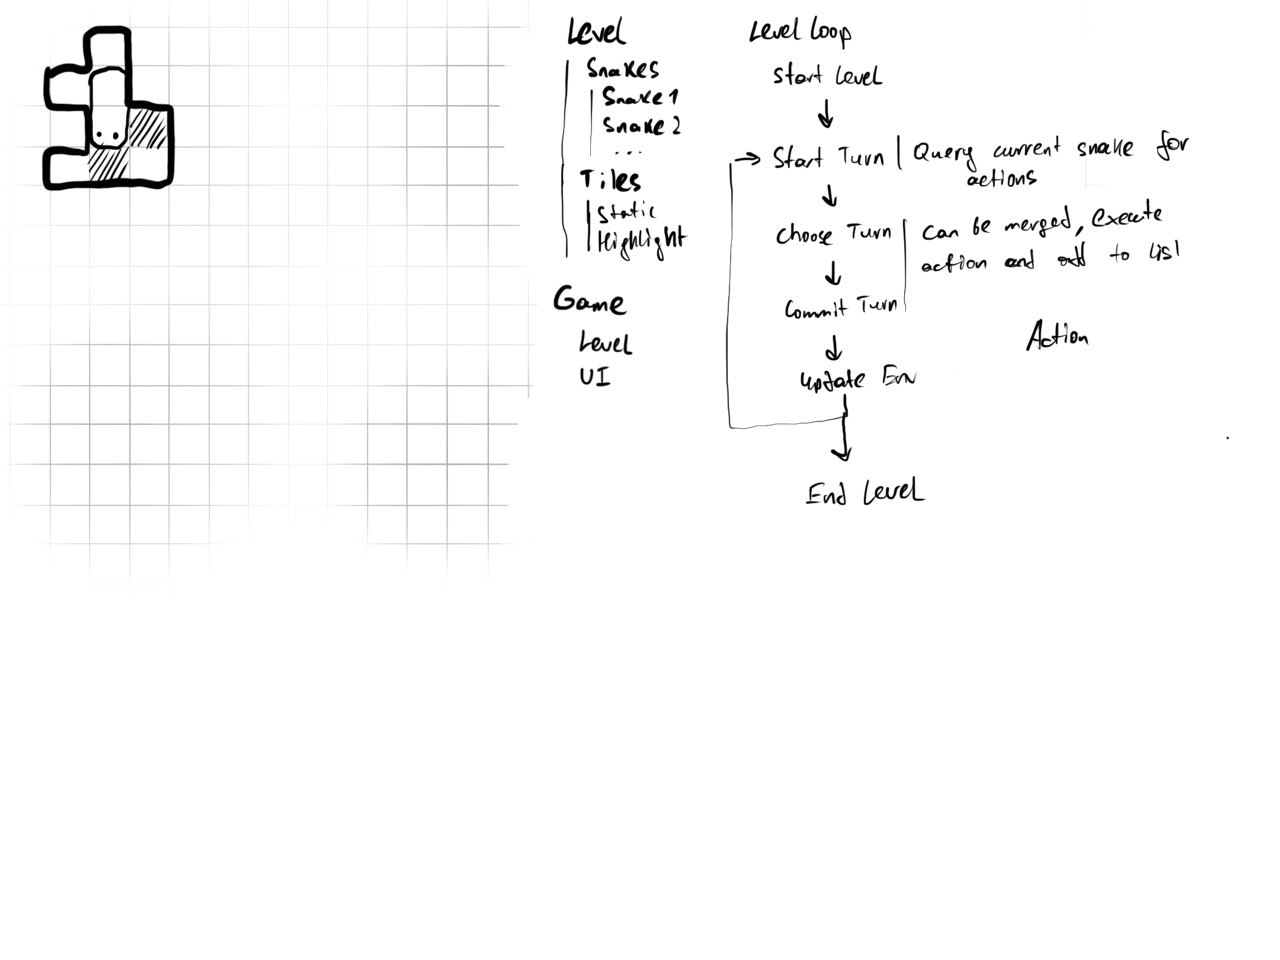 Level
Snakes
Snake 1
Snake 2
...
Tiles
Static
Highlight
Game
Level
UI
Level Loop
Start Level
Start Turn | Query current snake for
actions
Choose Turn
can be merged, execute
action and add to list
Commit Turn
Action
Update Env
End Level